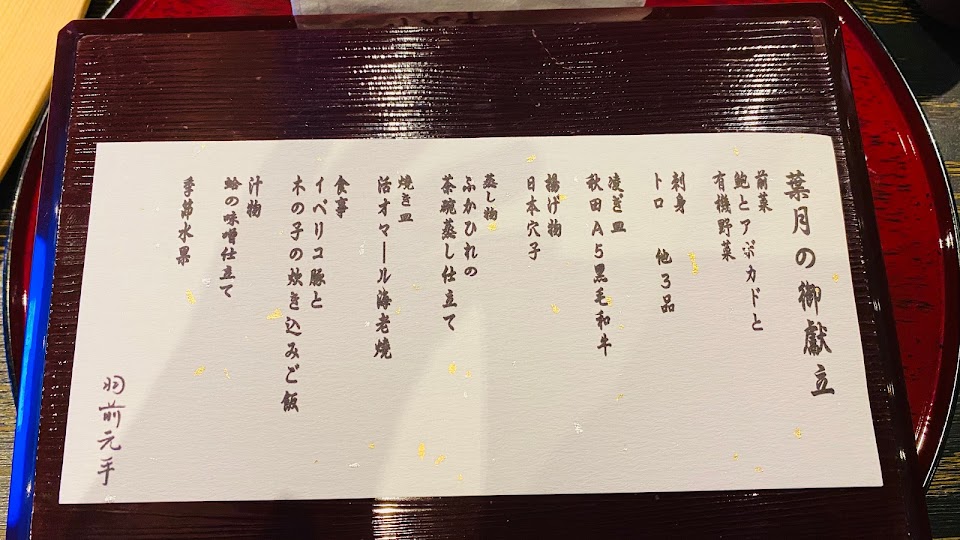 葉月の御献立
前菜
鮑とアボカドと
有機野菜
刺身
トロ　他3品
凌ぎ皿
秋田A5黒毛和牛
揚げ物
日本穴子
蒸し物
ふかひれの
茶碗蒸し仕立て
焼き皿
活オマール海老焼
食事
イベリコ豚と
木の子の炊き込みご飯
汁物
蛤の味噌仕立て
季節水果
羽前元手